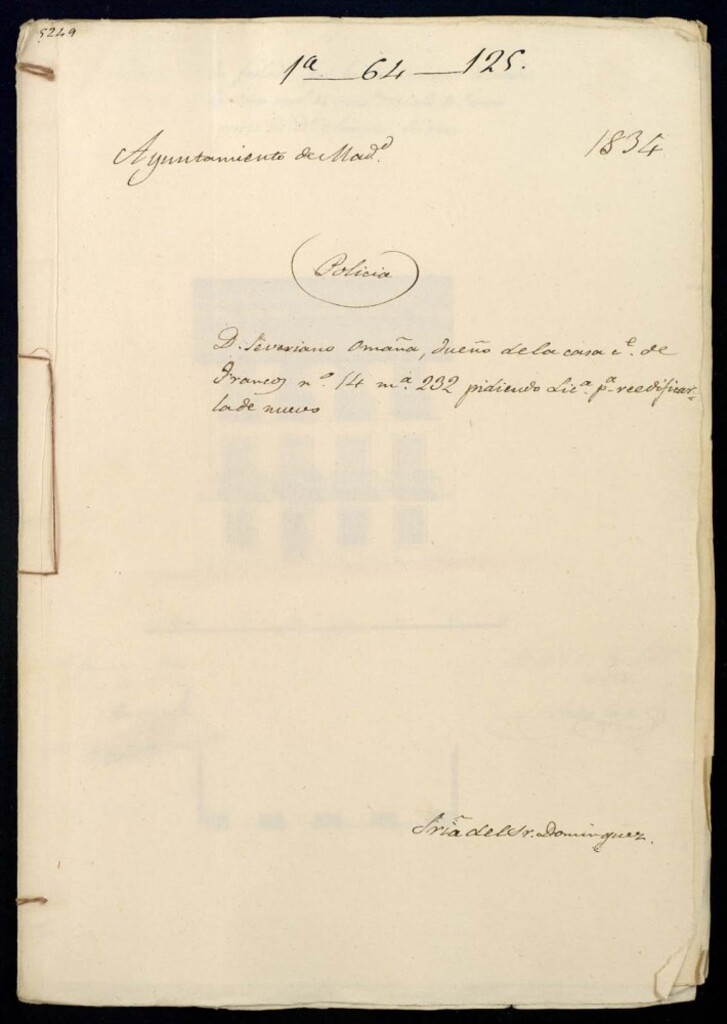 5249
1ª — 64 — 125.
Ayuntamiento de Madᵈ.
1834
Policia
D. Severiano Omaña, dueño de la casa c.ᵉ de
Francos n.º 14 m.ª 232 pidiendo Lic.ª p.ª reedificar-
la de nuevo
Sría del Sr. Dominguez.